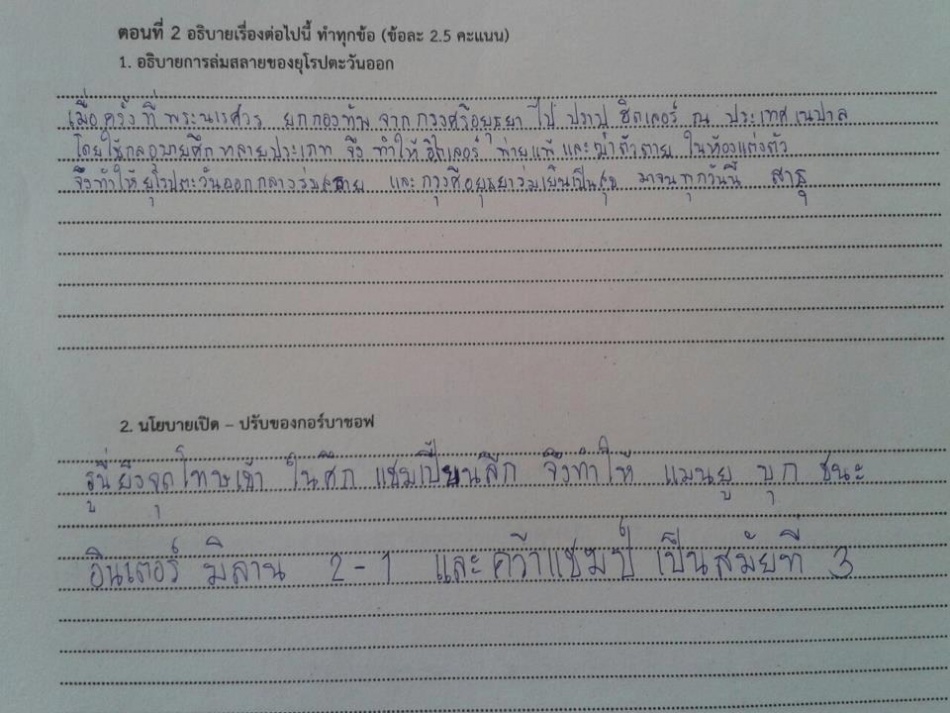 ตอนที่ 2 อธิบายเรื่องต่อไปนี้ ทำทุกข้อ (ข้อละ 2.5 คะแนน)
1. อธิบายการล่มสลายของยุโรปตะวันออก
เมื่อครั้งที่พระนเรศวร ยกกองทัพ จากกรุงศรีอยุธยา ไป ปราบ ฮิตเลอร์ ณ ประเทศเนปาล
โดยใช้กลอุบายศึก หลายประเภท จึง ทำให้ฮิตเลอร์ พ่ายแพ้ และฆ่าตัวตาย ในห้องแต่งตัว
จึงทำให้ยุโรปตะวันออกกลางล่มสลาย และ กรุงศีอยุธยาร่มเย็นเป็นสุข มาจนทุกวันนี้ สาธุ
2. นโยบายเปิด – ปรับของกอร์บาชอฟ
รูนี่ยิงจุดโทษเข้า ในศึก แชมเปี้ยนลีก จึงทำให้ แมนยู บุก ชนะ
อินเตอร์ มิลาน 2-1 และคว้าแชมป์ เป็นสมัยที่ 3